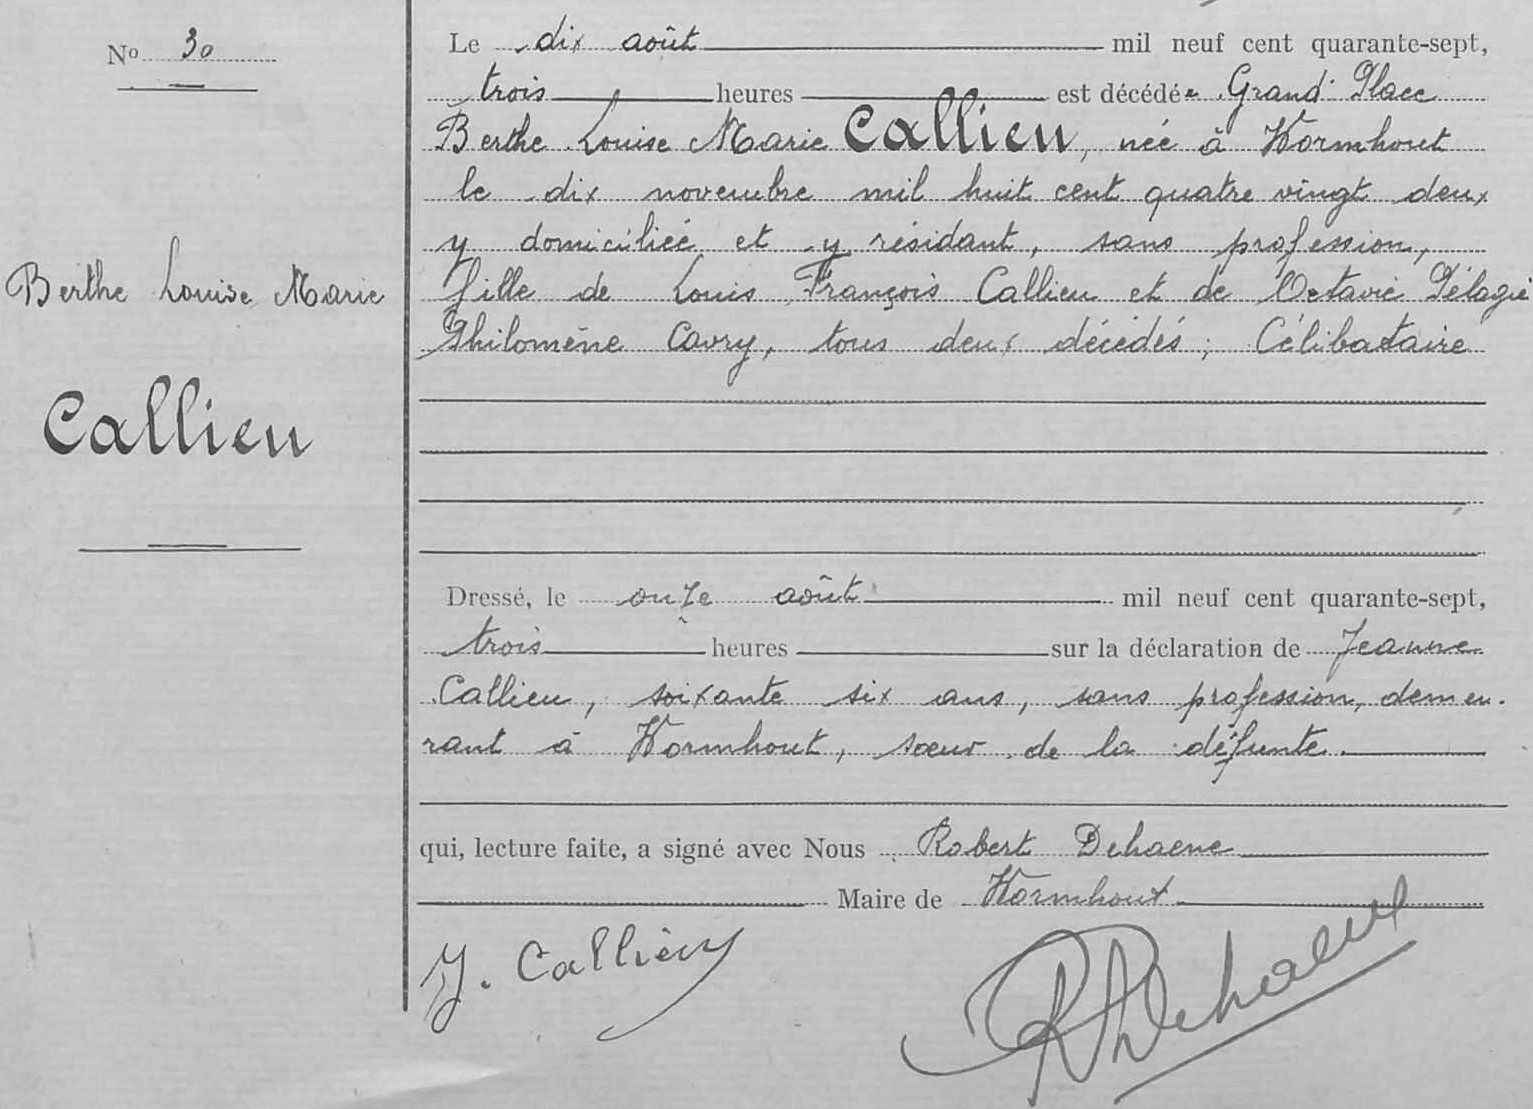 N° 30
Berthe Louise Marie
Callieu
Le dix août mil neuf cent quarante-sept,
trois heures est décédée Grand'Place
Berthe Louise Marie Callieu, née à Wormhout
le dix novembre mil huit cent quatre vingt deux
y domiciliée et y résidant, sans profession,
fille de Louis François Callieu et de Octavie Pélagie
Philomène Cavry, tous deux décédés; Célibataire
Dressé, le onze août mil neuf cent quarante-sept,
trois heures sur la déclaration de Jeanne
Callieu, soixante six ans, sans profession, demeu-
rant à Wormhout, sœur de la défunte.
qui, lecture faite, a signé avec Nous Robert Dehaene
Maire de Wormhout
J. Callieu
R Dehaene